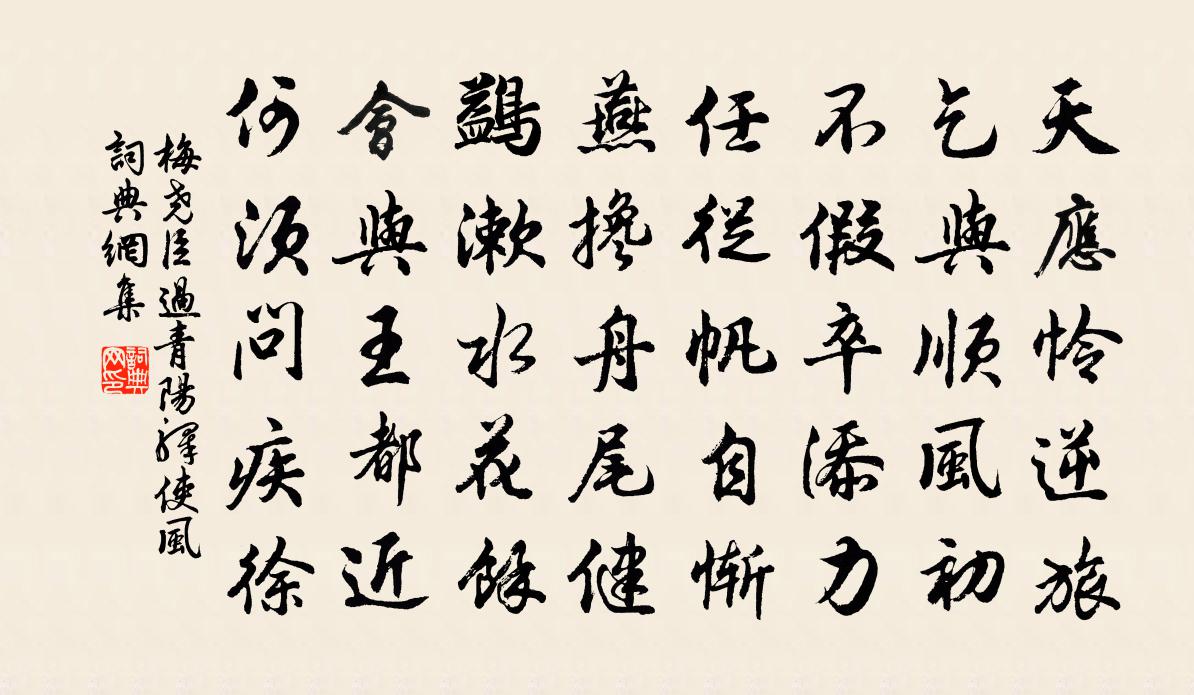 天應怜逆旅
乞與順風初
不假卒添力
任從帆自慚
燕搀舟尾健
鷁漱水花餘
會與王都近
何須問疾徐
梅尧臣過青陽驛使風
詞典網集
詞典网印